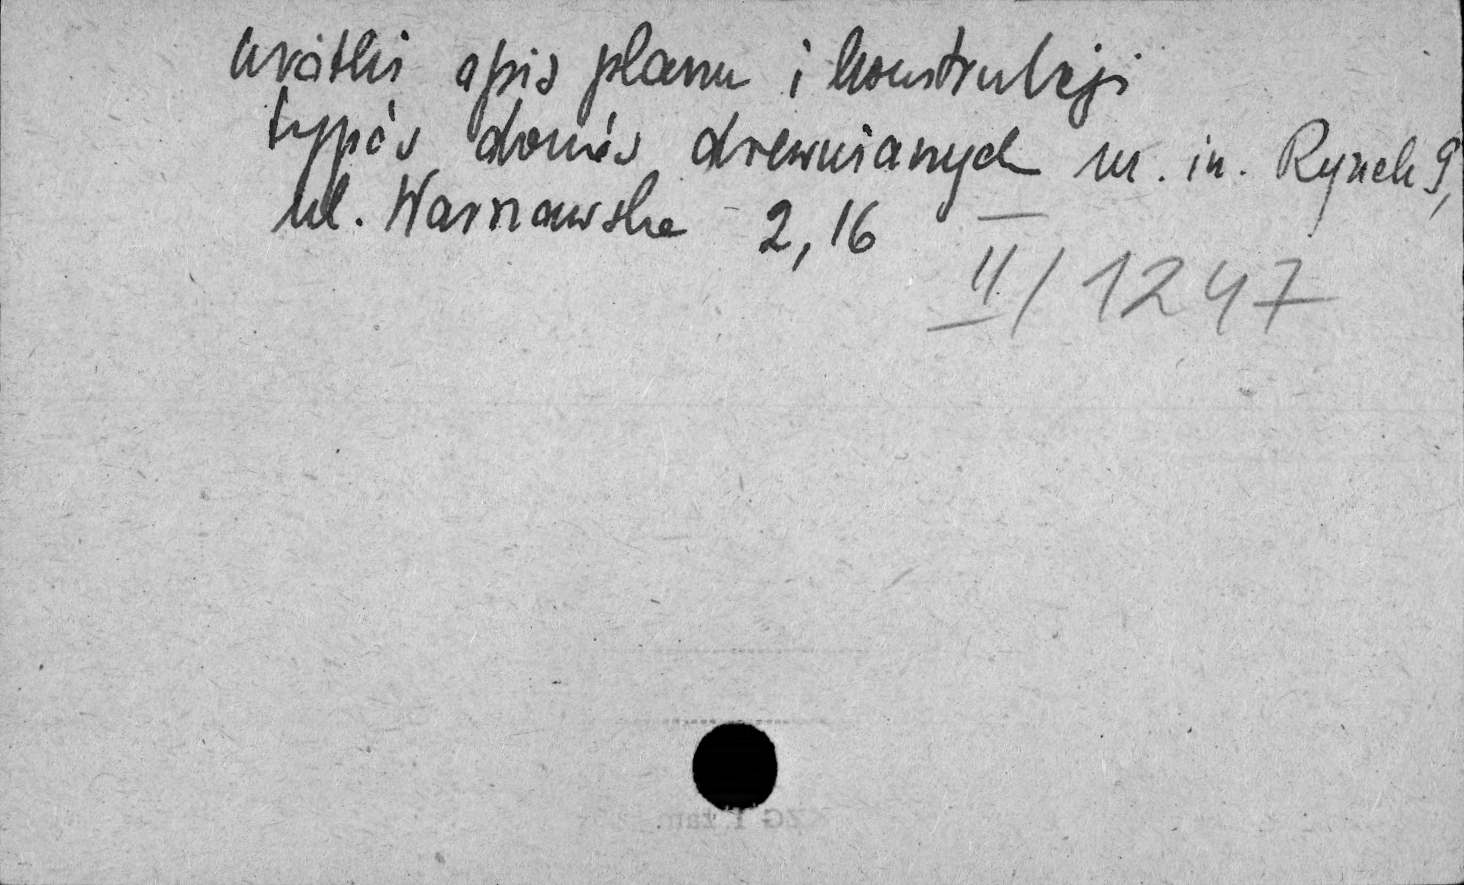 krótki opis planu i konstrukcji
typów domów drewnianych m. in. Rynek 9,
ul. Warszawska 2, 16
II/1247
KZG 1 zam.